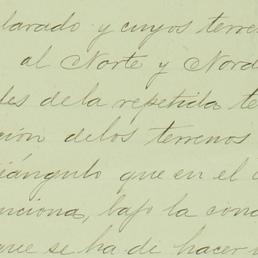 larado y cuyos terre
al Norte y Nord
les de la repetida te
ción delos terrenos
riángulo que en el c
nciona, bajo la cond
que se ha de hacer